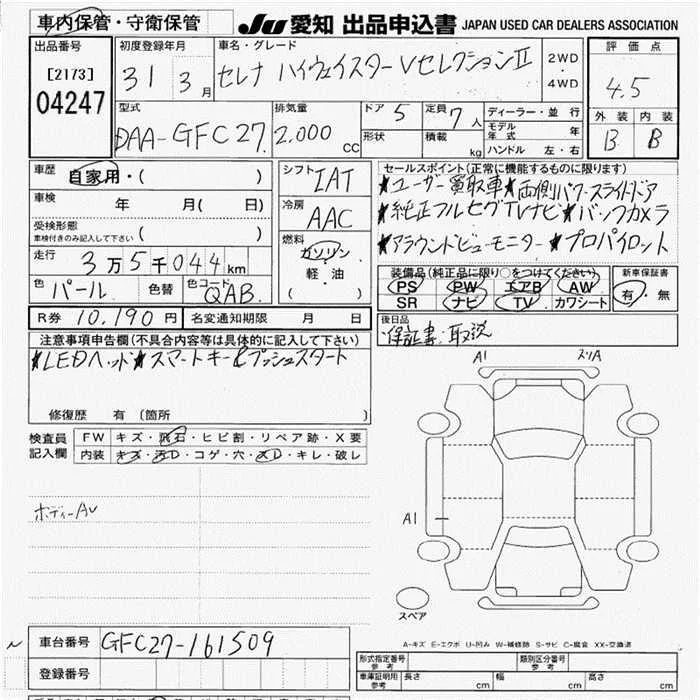 車内保管・守衛保管
JU 愛知 出品申込書 JAPAN USED CAR DEALERS ASSOCIATION
出品番号
[2173]
04247
初度登録年月
31 3月
車名・グレード
セレナ ハイウェイスターVセレクションII
2WD
・
4WD
評価点
4.5
外装 内装
B B
型式
DAA-GFC27.
排気量
2.000 cc
ドア 5
形状
定員 7人
積載 kg
ディーラー・並行
モデル年式 年
ハンドル 左・右
車歴
自家用・( )
車検 年 月( 日)
受検形態
車検付きのみ記入して下さい ( )
走行 3万5千044km
色 パール. 色替 色コード QAB.
シフト IAT
冷房 AAC
燃料
ガソリン
・
軽・油
( )
セールスポイント(正常に機能するものに限ります)
★ユーザー買取車★両側パワースライドドア
★純正フルセグTVナビ★バックカメラ
★アラウンドビューモニター★プロパイロット
装備品(純正品に限り○をつけてください)
PS PW エアB AW
SR ナビ TV カワシート
新車保証書
有・無
R券 10,190円 名変通知期限 月 日
後日品
・保証書・取説
注意事項申告欄(不具合内容等は具体的に記入して下さい)
★LEDヘッド★スマートキー&プッシュスタート
修復歴 有 〔箇所 〕
検査員記入欄
FW キズ・飛石・ヒビ割・リペア跡・X要
内装 キズ・汚れ・コゲ・穴・スレ・キレ・破レ
ボディーAU
A1
スリA
A1
スペア
A-キズ E-エクボ U-凹み W-補修跡 S-サビ C-腐食 XX-交換済
車台番号 GFC27-161509
登録番号
形式指定番号
参考
類別区分番号
参考
車庫証明用
参考
長さ cm 幅 cm 高さ cm